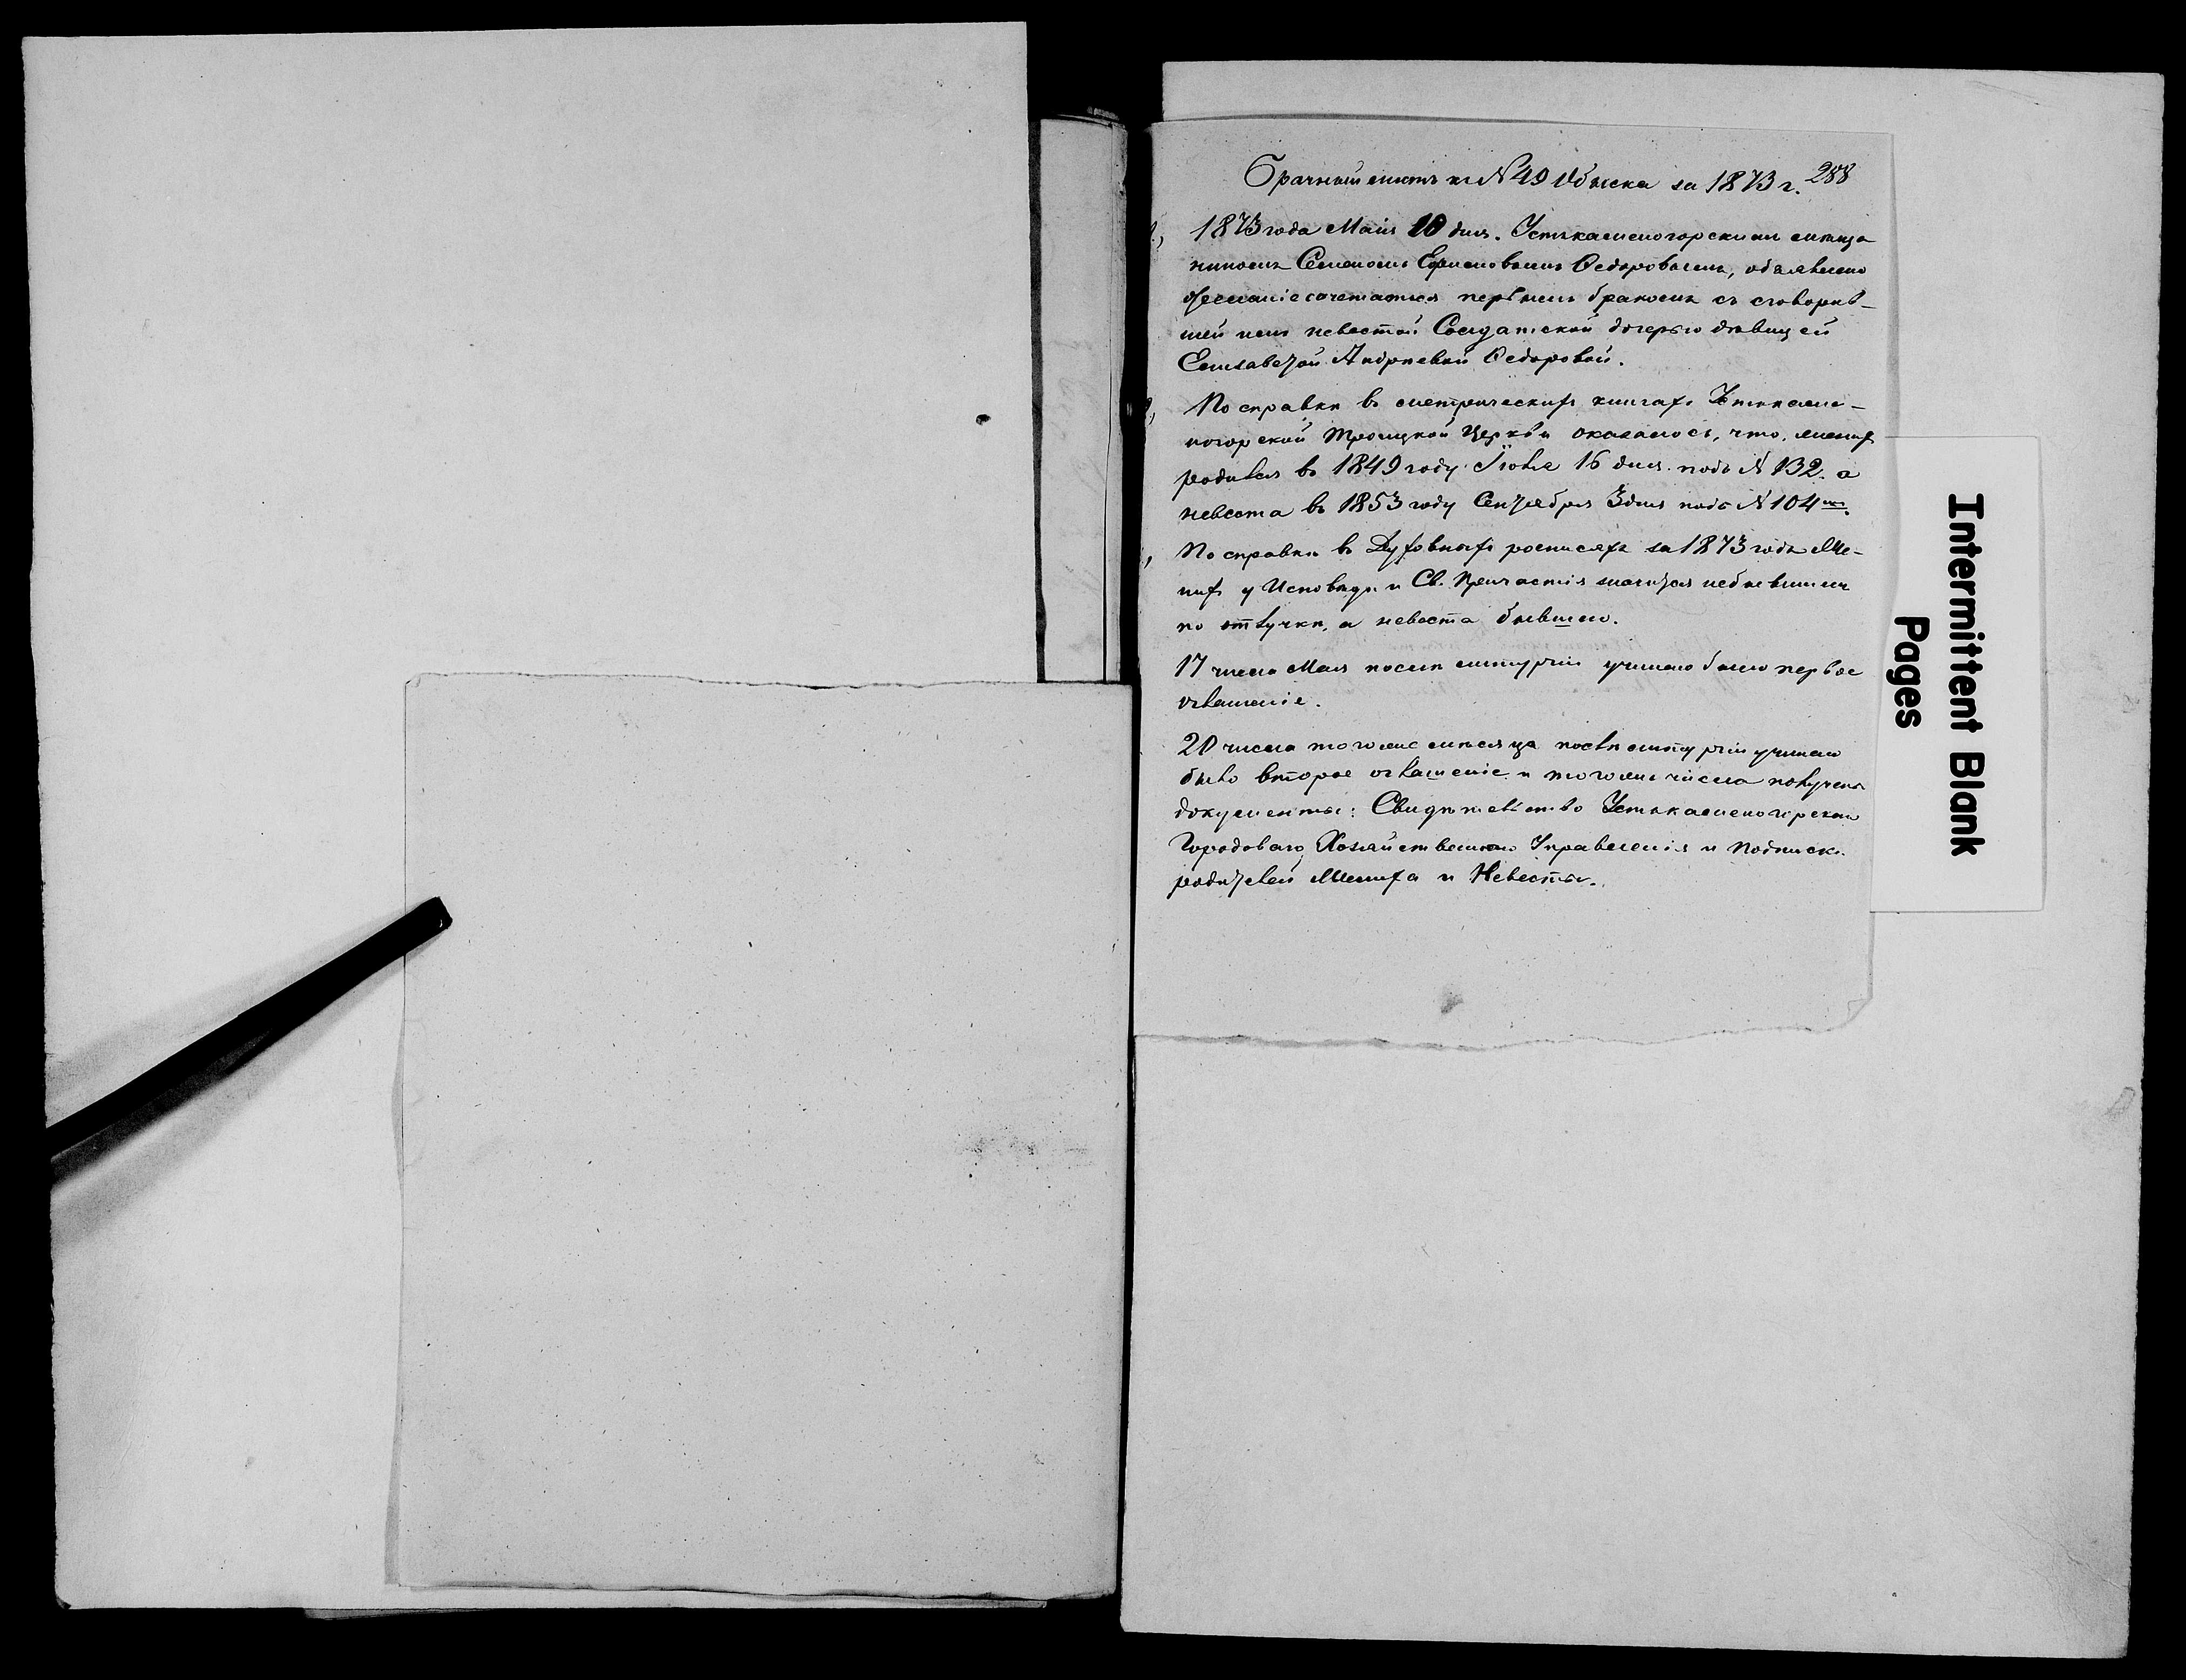 Брачный листъ къ №49 Обыска за 1873 г. 288
1873 года Маія 10 дня. Устькаменогорскимъ мѣща-
ниномъ Семеномъ Ѳедоровымъ, объявлено
желаніе сочетаться первымъ бракомъ съ сговорив-
шей имъ невѣстой Солдатской дочерью дѣвицей
Елизаветой Андреевой Ѳедоровой.
По справкѣ въ метрическихъ книгахъ Устькаме-
ногорской Троицкой Церкви оказалось, что, женихъ
родился въ 1849 году Іюля 16 дня подъ №132. а
невѣста въ 1853 году Сентября 3 дня подъ №104мъ.
По справкѣ въ Духовныхъ росписяхъ за 1873 годъ Же-
нихъ у Исповѣди и Св. Причастія значится небывшимъ
по отлучкѣ, а невѣста бывшею.
17 числа Мая послѣ литургіи учинено было первое
оглашеніе.
20 числа того же мѣсяца послѣ литургіи учинено
было второе оглашеніе и того же числа получены
документы: Свидѣтельство Устькаменогорскаго
Городоваго Хозяйственнаго Управленія и подписки
родителей Жениха и Невѣсты.
Intermittent Blank
Pages